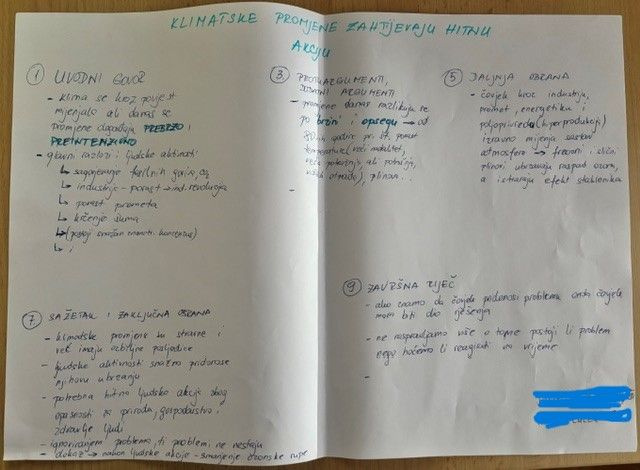 KLIMATSKE PROMJENE ZAHTJEVAJU HITNU
AKCIJU
① UVODNI GOVOR
- Klima se kroz povijest
mijenjala ali danas se
promjene događaju PREBRZO i
PREINTENZIVNO
- glavni razlozi → ljudske aktivnosti
↳ sagorijevanje fosilnih goriva, CO2
↳ industrija - porast → ind. revolucija
↳ porast prometa
↳ krčenje šuma
↳ (postoji snažan znanstv. koncenzus)
↳ i
③ PROTUARGUMENTI,
ARGUMENTI
- promjene danas razlikuju se
po 'brzini' i opsegu → od
80-ih godina pr. st. porast
temperature (veći natalitet,
veća potražnja, ali potrošnja,
otpada), plinova..
-
⑤ DALJNJA OBRANA
- čovjek kroz industriju,
promet, energetiku i
poljoprivredu (hiperprodukcija)
izravno mijenja sastav
atmosfere → freoni i slični
plinovi ubrzavaju raspad ozona,
a istražuju efekt staklenika
⑦ SAŽETAK I ZAKLJUČNA OBRANA
- klimatske promjene su stvarne i
već imaju ozbiljne posljedice
- ljudske aktivnosti snažno pridonose
njihovu ubrzanju
- potrebna hitna ljudska akcija zbog
opasnosti za prirodu, gospodarstvo i
zdravlje ljudi
- ignoriranjem problema, ti problemi ne nestaju
- dokaz → nakon ljudske akcije - smanjenje ozonske rupe
⑨ ZAVRŠNA RIJEČ
- ako znamo da čovjek pridonosi problemu onda čovjek
mora biti dio rješenja
- ne raspravljamo više o tome postoji li problem
nego hoćemo li reagirati na vrijeme
-